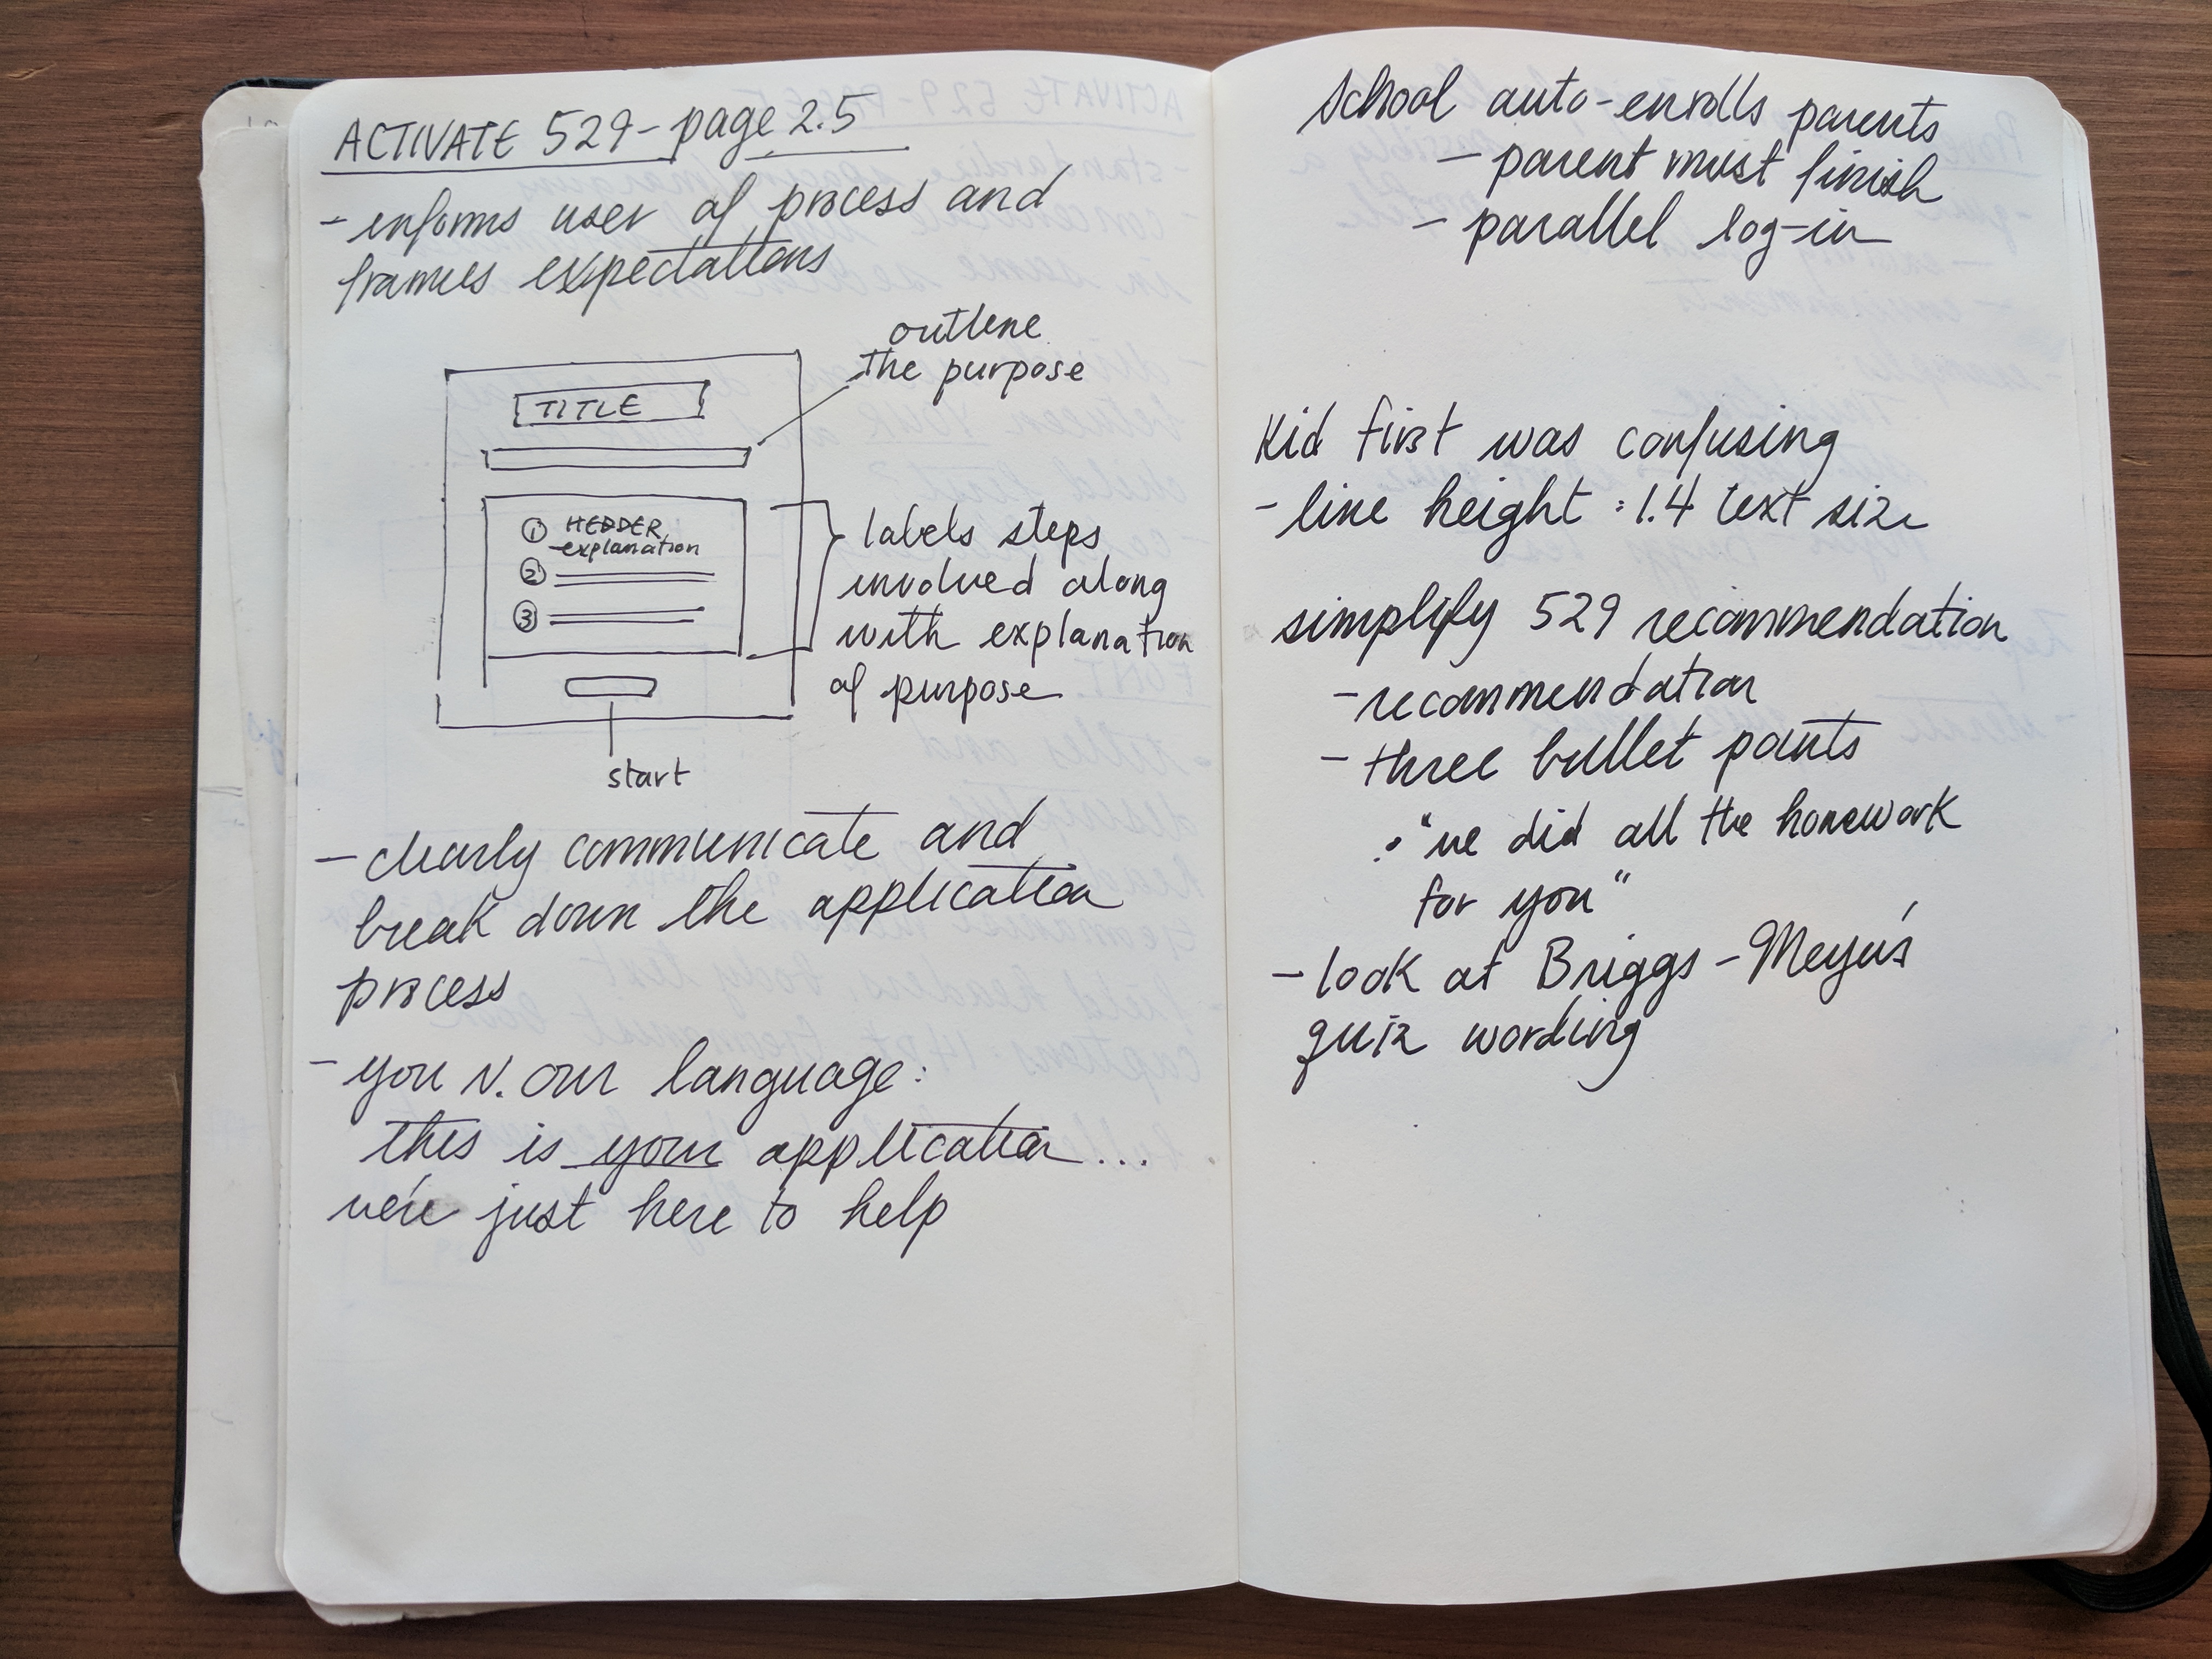 ACTIVATE 529 - page 2.5
- informs user of process and
frames expectations
outline
the purpose
TITLE
① HEDDER
explanation
②
③
labels steps
involved along
with explanation
of purpose
start
- clearly communicate and
break down the application
process
- you v. our language:
this is your application...
we're just here to help
School auto-enrolls parents
- parent must finish
- parallel log-in
Kid first was confusing
- line height : 1.4 text size
simplify 529 recommendation
- recommendation
- three bullet points
• "we did all the homework
for you"
- look at Briggs - Meyer's
quiz wording